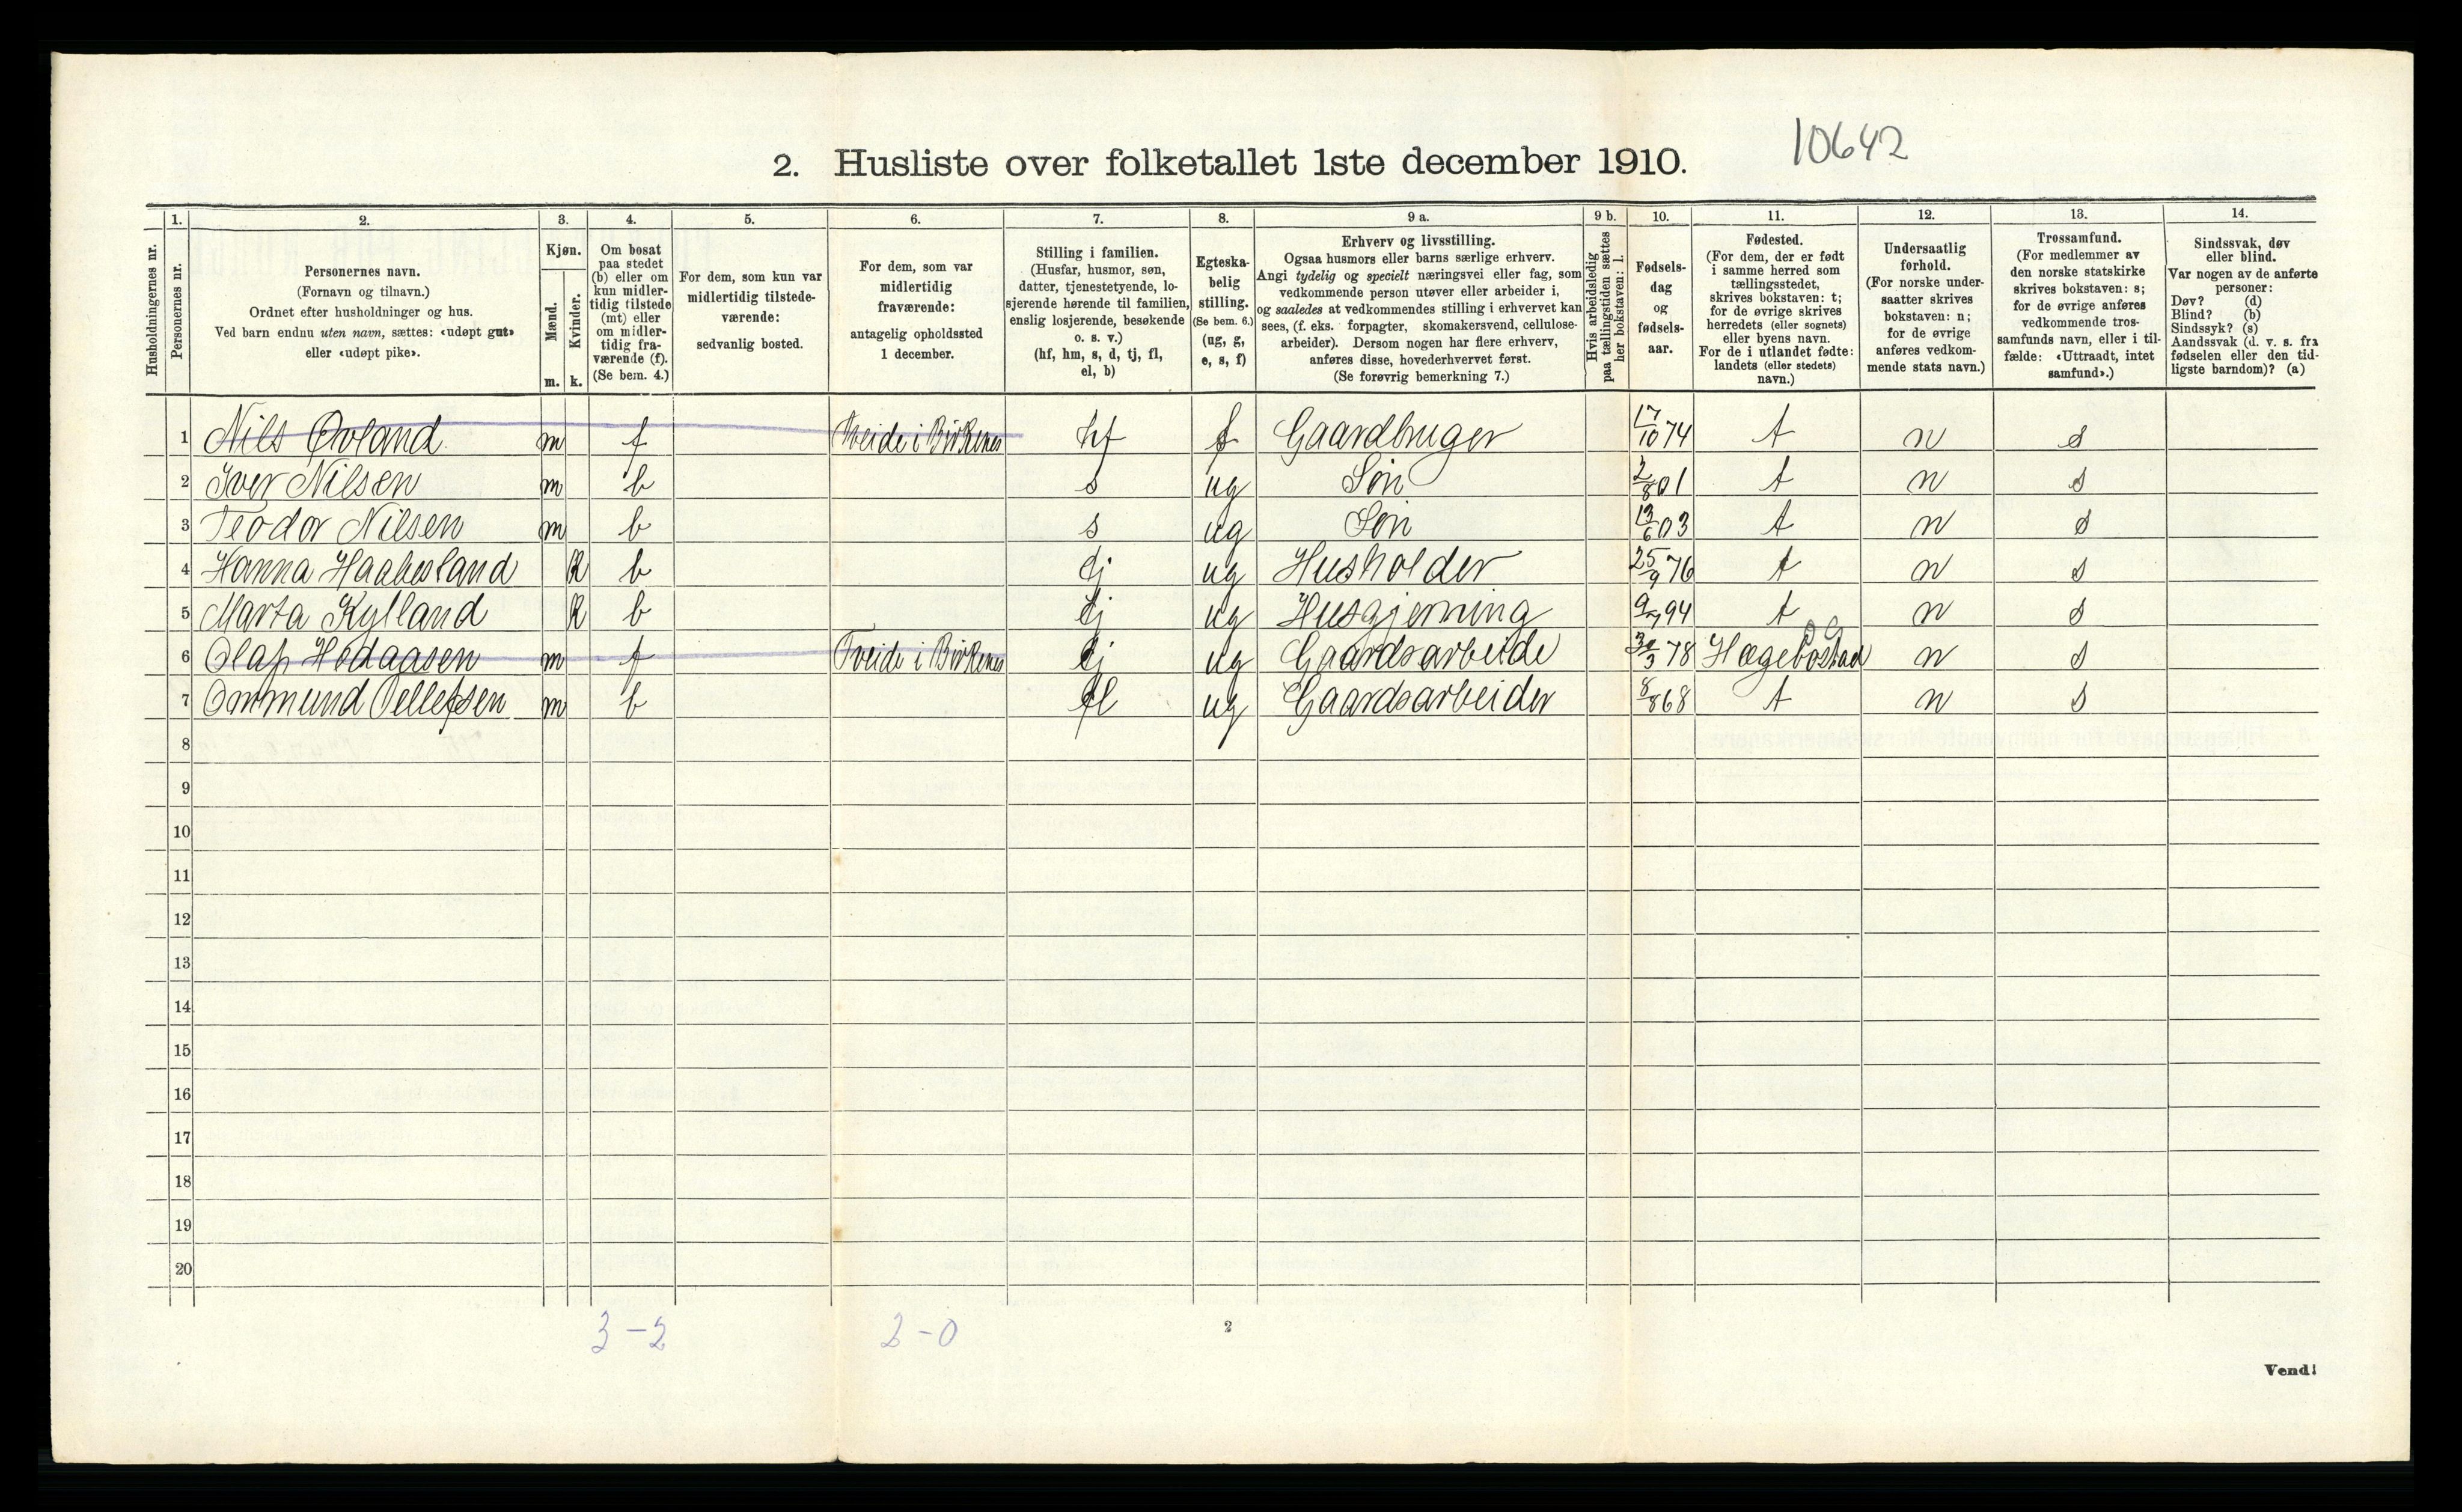 10642
2. Husliste over folketallet 1ste december 1910.
Husholdningernes nr.
1.
Personernes nr.
2.
Personernes navn.
(Fornavn og tilnavn.)
Ordnet efter husholdninger og hus.
Ved barn endnu uten navn, sættes: «udøpt gut»
eller «udøpt pike».
3.
Kjøn.
Mænd.
m.
Kvinder.
k.
4.
Om bosat
paa stedet
(b) eller om
kun midler-
tidig tilstede
(mt) eller
om midler-
tidig fra-
værende (f).
(Se bem. 4.)
5.
For dem, som kun var
midlertidig tilstede-
værende:
sedvanlig bosted.
6.
For dem, som var
midlertidig
fraværende:
antagelig opholdssted
1 december.
7.
Stilling i familien.
(Husfar, husmor, søn,
datter, tjenestetyende, lo-
sjerende hørende til familien,
enslig losjerende, besøkende
o. s. v.)
(hf, hm, s, d, tj, fl,
el, b)
8.
Egteska-
belig
stilling.
(Se bem. 6.)
(ug, g,
e, s, f)
9 a.
Erhverv og livsstilling.
Ogsaa husmors eller barns særlige erhverv.
Angi tydelig og specielt næringsvei eller fag, som
vedkommende person utøver eller arbeider i,
og saaledes at vedkommendes stilling i erhvervet kan
sees, (f. eks. forpagter, skomakersvend, cellulose-
arbeider). Dersom nogen har flere erhverv,
anføres disse, hovederhvervet først.
(Se forøvrig bemerkning 7.)
9 b.
Hvis arbeidsledig
paa tællingstiden sættes
her bokstaven: l.
10.
Fødsels-
dag
og
fødsels-
aar.
11.
Fødested.
(For dem, der er født
i samme herred som
tællingsstedet,
skrives bokstaven: t;
for de øvrige skrives
herredets (eller sognets)
eller byens navn.
For de i utlandet fødte:
landets (eller stedets)
navn.)
12.
Undersaatlig
forhold.
(For norske under-
saatter skrives
bokstaven: n;
for de øvrige
anføres vedkom-
mende stats navn.)
13.
Trossamfund.
(For medlemmer av
den norske statskirke
skrives bokstaven: s;
for de øvrige anføres
vedkommende tros-
samfunds navn, eller i til-
fælde: «Uttraadt, intet
samfund».)
14.
Sindssvak, døv
eller blind.
Var nogen av de anførte
personer:
Døv? (d)
Blind? (b)
Sindssyk? (s)
Aandssvak (d. v. s. fra
fødselen eller den tid-
ligste barndom)? (a)
1 Nils Øvland m f Tveide i Birkenes hf f Gaardbruger 17/10 74 t n s
2 Iver Nilsen m b s ug Søn 2/8 01 t n s
3 Teodor Nilsen m b s ug Søn 13/6 03 t n s
4 Hanna Haabesland k b tj ug Husholder 25/9 76 t n s
5 Marta Kylland k b tj ug Husgjerning 94 t n s
6 Olaf Hedaasen m f Tveide i Birkenes tj ug Gaardsarbeide 78 Hægebostad n s
7 Ommund Tellefsen m b fl ug Gaardsarbeider 8/8 68 t n s
8
9
10
11
12
13
14
15
16
17
18
19
20
3-2 2-0
2
Vend!